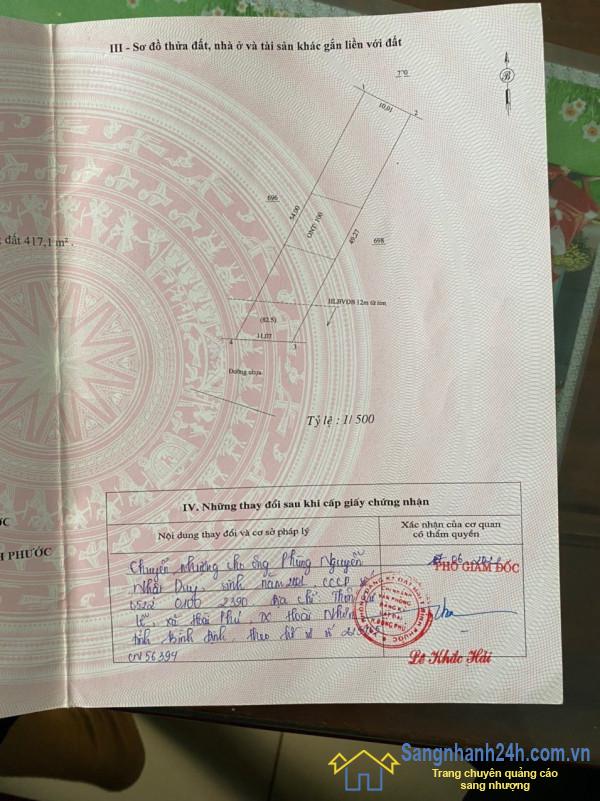 III - Sơ đồ thửa đất, nhà ở và tài sản khác gắn liền với đất
B
1
10,01
2
696
54.00
ONT 100
49.27
698
đất 417,1 m².
HLBVĐB 12m từ tim
(82.5)
4
11.07
3
Đường nhựa
Tỷ lệ : 1/ 500
IV. Những thay đổi sau khi cấp giấy chứng nhận
Nội dung thay đổi và cơ sở pháp lý
Xác nhận của cơ quan
có thẩm quyền
H PHƯỚC
Chuyển nhượng cho ông Phùng Nguyễn
Nhật Duy, sinh năm CCCD
địa chỉ: Thôn
xã Hoài Phú, TX Hoài Nhơn
tỉnh Bình Định, theo hồ sơ số
PHÓ GIÁM ĐỐC
VĂN PHÒNG
ĐĂNG KÝ
ĐẤT ĐAI
H. ĐỒNG PHÚ
Lê Khắc Hải
Sangnhanh24h.com.vn
Trang chuyên quảng cáo
sang nhượng